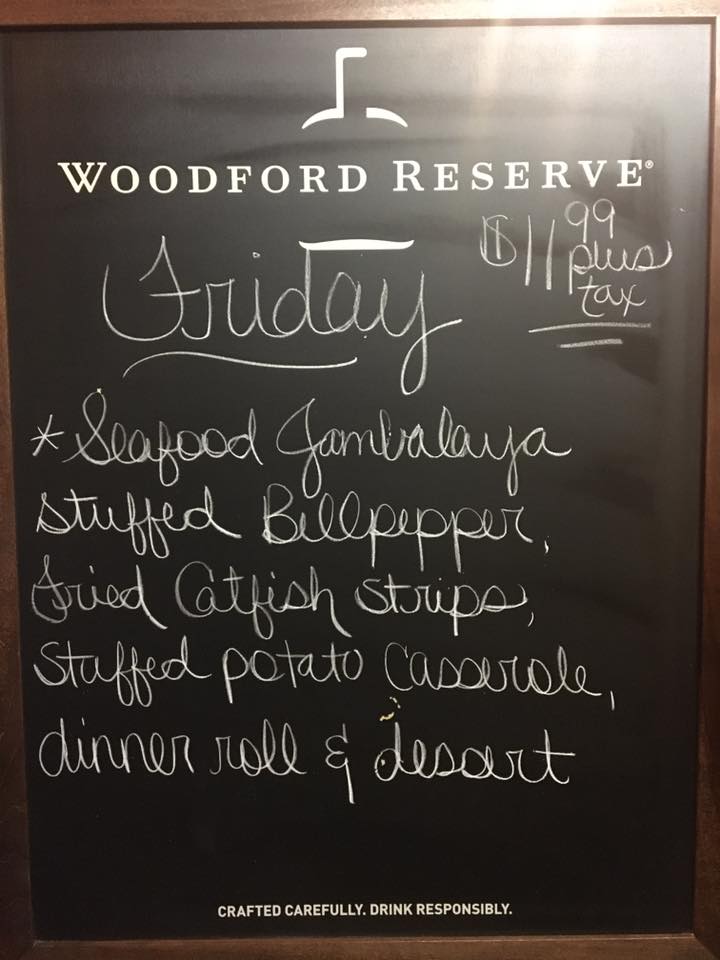 WOODFORD RESERVE®
$11 99 plus tax
Friday
* Seafood Jambalaya
stuffed Bellpepper,
Fried Catfish strips,
Stuffed potato Casserole,
dinner roll & dessert
CRAFTED CAREFULLY. DRINK RESPONSIBLY.